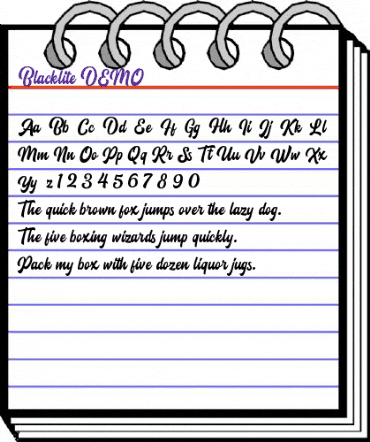 Blacklite DEMO
Aa Bb Cc Dd Ee Ff Gg Hh Ii Jj Kk Ll
Mm Nn Oo Pp Qq Rr Ss Tt Uu Vv Ww Xx
Yy z 1 2 3 4 5 6 7 8 9 0
The quick brown fox jumps over the lazy dog.
The five boxing wizards jump quickly.
Pack my box with five dozen liquor jugs.